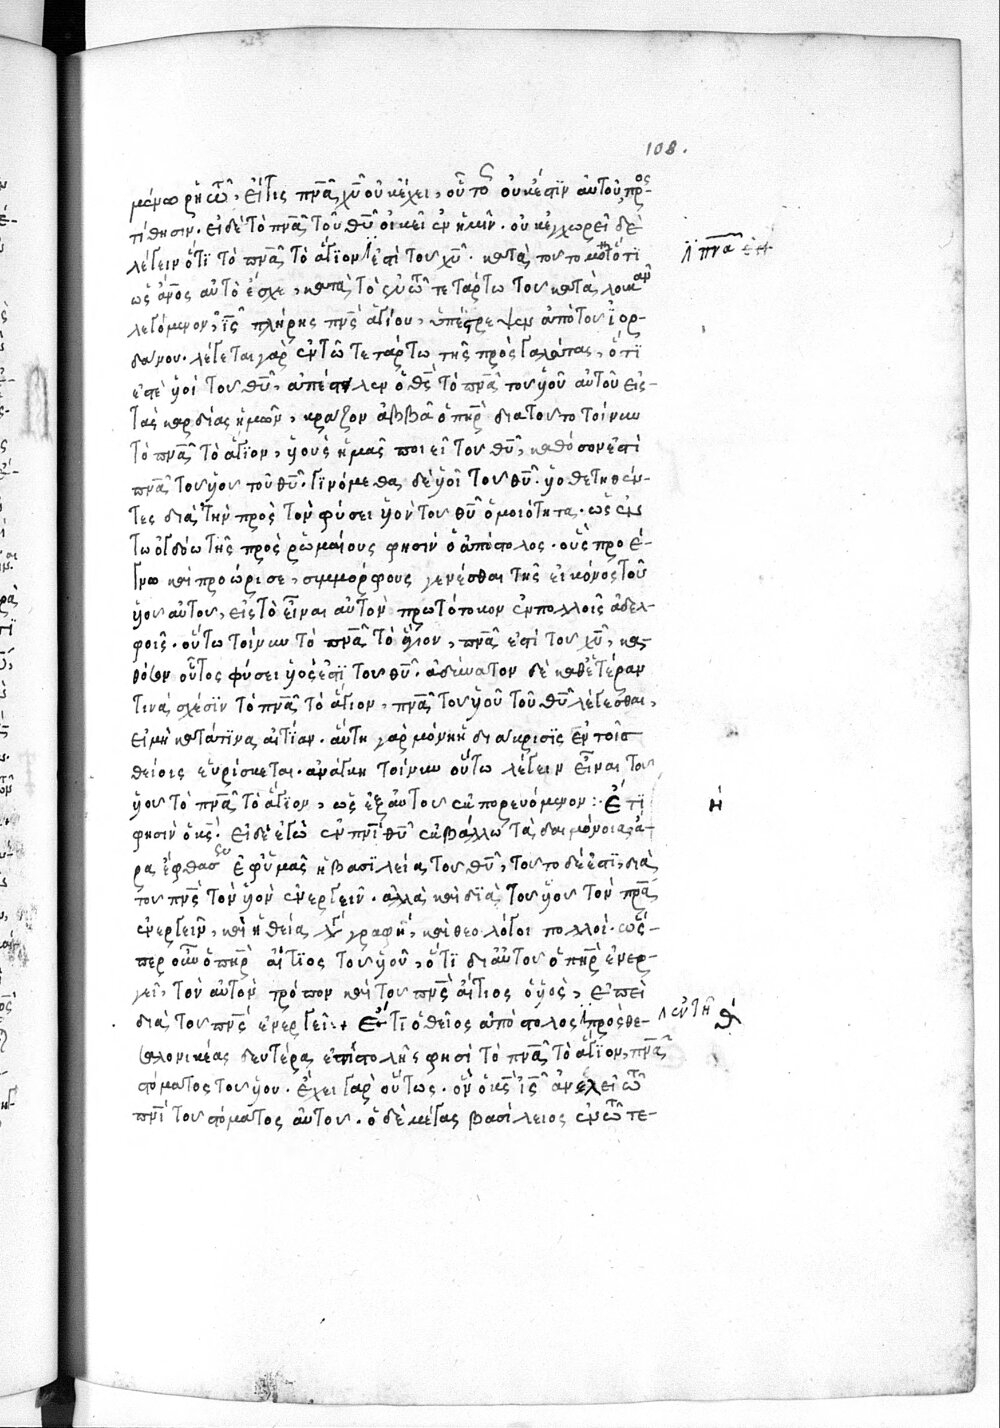 108.
μένω ῥητῶ, εἴ τις πνᾶ χῦ οὐκ ἔχει, οὗτος οὐκ ἔστιν αὐτοῦ προς
τίθησιν. εἰ δὲ τὸ πνᾶ τοῦ θῦ οἰκεῖ ἐν ἡμῖν. οὐκ ἐγχωρεῖ δὲ
λέγειν ὅτι τὸ πνᾶ τὸ ἅγιον ἐστὶ τοῦ χῦ. κατὰ τοῦτο μόνον ὅτι
πνᾶ
ὡς ἄνος αὐτὸ ἔσχε, κατὰ τὸ ἐν τῶ τετάρτω τοῦ κατὰ λουκᾶν
λεγόμενον, ἰς πλήρης πνς ἁγίου, ὑπέστρεψεν ἀπὸ τοῦ ἰορ-
δάνου. λέγεται γὰρ ἐν τῶ τετάρτω τῆς πρὸς γαλάτας, ὅτι
ἐστὲ υἱοὶ τοῦ θῦ, ἀπέστειλεν ὁ θς τὸ πνᾶ τοῦ υἱοῦ αὐτοῦ εἰς
τὰς καρδίας ἡμῶν, κράζον ἀββᾶ ὁ πηρ διὰ τοῦτο τοίνυν
τὸ πνᾶ τὸ ἅγιον, υἱοὺς ἡμᾶς ποιεῖ τοῦ θῦ, καθόσον ἐστὶ
πνᾶ τοῦ υἱοῦ τοῦ θῦ. γινόμεθα δὲ υἱοὶ τοῦ θῦ. υἱοθετηθέν-
τες διὰ τὴν πρὸς τὸν φύσει υἱὸν τοῦ θῦ ὁμοιότητα. ὡς ἐν
τῶ ὀγδόω τῆς πρὸς ῥωμαίους φησὶν ὁ ἀπόστολος. οὓς προέ-
γνω καὶ προώρισε, συμμόρφους γενέσθαι τῆς εἰκόνος τοῦ
υἱοῦ αὐτοῦ, εἰς τὸ εἶναι αὐτὸν πρωτότοκον ἐν πολλοῖς ἀδελ-
φοῖς. οὕτω τοίνυν τὸ πνᾶ τὸ ἅγιον, πνᾶ ἐστὶ τοῦ χῦ, κα-
θόσον οὗτος φύσει υἱός ἐστι τοῦ θῦ. ἀδύνατον δὲ καθ' ἑτέραν
τινὰ σχέσιν τὸ πνᾶ τὸ ἅγιον, πνᾶ τοῦ υἱοῦ τοῦ θῦ λέγεσθαι,
εἰ μὴ κατά τινα αἰτίαν. αὕτη γὰρ μόνη ἡ διάκρισις ἐν τοῖς
θείοις εὑρίσκεται. ἀνάγκη τοίνυν οὕτω λέγειν εἶναι τοῦ
υἱοῦ τὸ πνᾶ τὸ ἅγιον, ὡς ἐξ αὐτοῦ ἐκπορευόμενον:· Ἔτι
ἡ
φησὶν ὁ κς. εἰ δὲ ἐγὼ ἐν πνὶ θῦ ἐκβάλλω τὰ δαιμόνια, ἄ-
ρα ἔφθασεν ἐφ' ὑμᾶς ἡ βασιλεία τοῦ θῦ, τοῦτο δέ ἐστι, διὰ
τοῦ πνς τὸν υἱὸν ἐνεργεῖν. ἀλλὰ καὶ διὰ τοῦ υἱοῦ τὸν πρᾶ
ἐνεργεῖν, καὶ ἡ θεία γραφὴ, καὶ θεολόγοι πολλοί. ὥς-
περ οὖν ὁ πηρ αἴτιος τοῦ υἱοῦ, ὅτι δι' αὐτοῦ ὁ πηρ ἐνερ-
γεῖ, τὸν αὐτὸν τρόπον καὶ τοῦ πνς αἴτιος ὁ υἱὸς, ἐπεὶ
διὰ τοῦ πνς ἐνεργεῖ:+ Ἔτι ὁ θεῖος ἀπόστολος πρὸς θε-
ἐν τῆ θ
σσαλονικέας δευτέρα ἐπιστολῆς φησὶ τὸ πνᾶ τὸ ἅγιον, πνᾶ
στόματος τοῦ υἱοῦ. ἔχει γὰρ οὕτως. ὃν ὁ κς ἰς ἀνελεῖ τῶ
πνὶ τοῦ στόματος αὐτοῦ. ὁ δὲ μέγας βασίλειος ἐν τῶ τε-